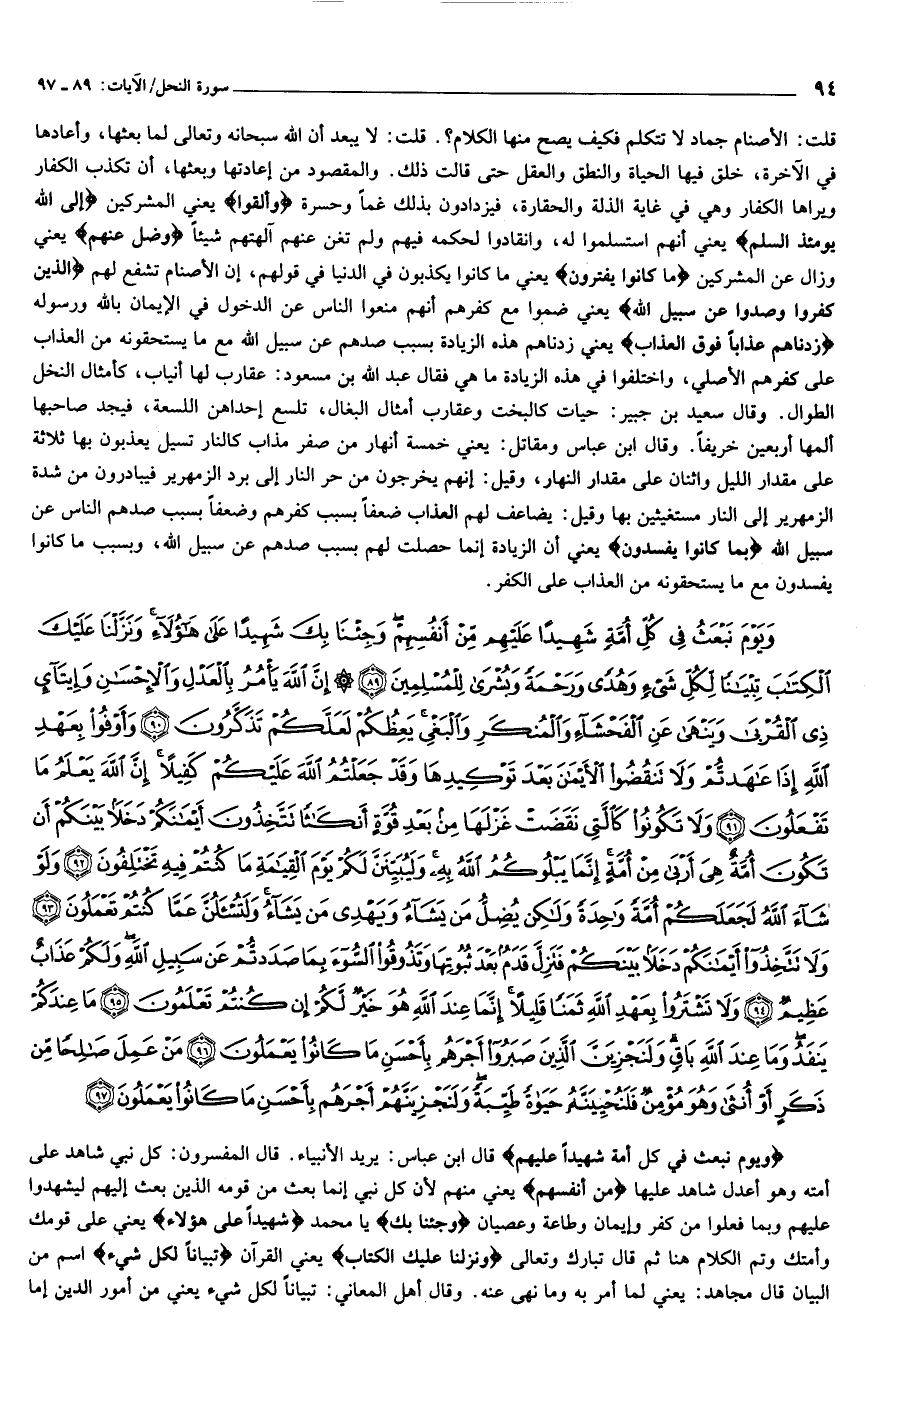 ٩٤ سورة النحل/ الآيات: ٨٩ ـ ٩٧
قلت: الأصنام جماد لا تتكلم فكيف يصح منها الكلام؟. قلت: لا يبعد أن الله سبحانه وتعالى لما بعثها، وأعادها
في الآخرة، خلق فيها الحياة والنطق والعقل حتى قالت ذلك. والمقصود من إعادتها وبعثها، أن تكذب الكفار
ويراها الكفار وهي في غاية الذلة والحقارة، فيزدادون بذلك غماً وحسرة ﴿وألقوا﴾ يعني المشركين ﴿إلى الله
يومئذ السلم﴾ يعني أنهم استسلموا له، وانقادوا لحكمه فيهم ولم تغن عنهم آلهتهم شيئاً ﴿وضل عنهم﴾ يعني
وزال عن المشركين ﴿ما كانوا يفترون﴾ يعني ما كانوا يكذبون في الدنيا في قولهم، إن الأصنام تشفع لهم ﴿الذين
كفروا وصدوا عن سبيل الله﴾ يعني ضموا مع كفرهم أنهم منعوا الناس عن الدخول في الإيمان بالله ورسوله
﴿زدناهم عذاباً فوق العذاب﴾ يعني زدناهم هذه الزيادة بسبب صدهم عن سبيل الله مع ما يستحقونه من العذاب
على كفرهم الأصلي، واختلفوا في هذه الزيادة ما هي فقال عبد الله بن مسعود: عقارب لها أنياب، كأمثال النخل
الطوال. وقال سعيد بن جبير: حيات كالبخت وعقارب أمثال البغال، تلسع إحداهن اللسعة، فيجد صاحبها
ألمها أربعين خريفاً. وقال ابن عباس ومقاتل: يعني خمسة أنهار من صفر مذاب كالنار تسيل يعذبون بها ثلاثة
على مقدار الليل واثنان على مقدار النهار، وقيل: إنهم يخرجون من حر النار إلى برد الزمهرير فيبادرون من شدة
الزمهرير إلى النار مستغيثين بها وقيل: يضاعف لهم العذاب ضعفاً بسبب كفرهم وضعفاً بسبب صدهم الناس عن
سبيل الله ﴿بما كانوا يفسدون﴾ يعني أن الزيادة إنما حصلت لهم بسبب صدهم عن سبيل الله، وبسبب ما كانوا
يفسدون مع ما يستحقونه من العذاب على الكفر.
وَيَوْمَ نَبْعَثُ فِي كُلِّ أُمَّةٍ شَهِيدًا عَلَيْهِم مِّنْ أَنفُسِهِمْ ۖ وَجِئْنَا بِكَ شَهِيدًا عَلَىٰ هَٰٓؤُلَآءِ ۚ وَنَزَّلْنَا عَلَيْكَ
ٱلْكِتَٰبَ تِبْيَٰنًا لِّكُلِّ شَيْءٍ وَهُدًى وَرَحْمَةً وَبُشْرَىٰ لِلْمُسْلِمِينَ ﴿٨٩﴾ ۞ إِنَّ ٱللَّهَ يَأْمُرُ بِٱلْعَدْلِ وَٱلْإِحْسَٰنِ وَإِيتَآيِٕ
ذِي ٱلْقُرْبَىٰ وَيَنْهَىٰ عَنِ ٱلْفَحْشَآءِ وَٱلْمُنكَرِ وَٱلْبَغْيِ ۚ يَعِظُكُمْ لَعَلَّكُمْ تَذَكَّرُونَ ﴿٩٠﴾ وَأَوْفُوا۟ بِعَهْدِ
ٱللَّهِ إِذَا عَٰهَدتُّمْ وَلَا تَنقُضُوا۟ ٱلْأَيْمَٰنَ بَعْدَ تَوْكِيدِهَا وَقَدْ جَعَلْتُمُ ٱللَّهَ عَلَيْكُمْ كَفِيلًا ۚ إِنَّ ٱللَّهَ يَعْلَمُ مَا
تَفْعَلُونَ ﴿٩١﴾ وَلَا تَكُونُوا۟ كَٱلَّتِي نَقَضَتْ غَزْلَهَا مِنۢ بَعْدِ قُوَّةٍ أَنكَٰثًا تَتَّخِذُونَ أَيْمَٰنَكُمْ دَخَلًۢا بَيْنَكُمْ أَن
تَكُونَ أُمَّةٌ هِيَ أَرْبَىٰ مِنْ أُمَّةٍ ۚ إِنَّمَا يَبْلُوكُمُ ٱللَّهُ بِهِۦ ۚ وَلَيُبَيِّنَنَّ لَكُمْ يَوْمَ ٱلْقِيَٰمَةِ مَا كُنتُمْ فِيهِ تَخْتَلِفُونَ ﴿٩٢﴾ وَلَوْ
شَآءَ ٱللَّهُ لَجَعَلَكُمْ أُمَّةً وَٰحِدَةً وَلَٰكِن يُضِلُّ مَن يَشَآءُ وَيَهْدِي مَن يَشَآءُ ۚ وَلَتُسْـَٔلُنَّ عَمَّا كُنتُمْ تَعْمَلُونَ ﴿٩٣﴾
وَلَا تَتَّخِذُوٓا۟ أَيْمَٰنَكُمْ دَخَلًۢا بَيْنَكُمْ فَتَزِلَّ قَدَمٌۢ بَعْدَ ثُبُوتِهَا وَتَذُوقُوا۟ ٱلسُّوٓءَ بِمَا صَدَدتُّمْ عَن سَبِيلِ ٱللَّهِ ۖ وَلَكُمْ عَذَابٌ
عَظِيمٌ ﴿٩٤﴾ وَلَا تَشْتَرُوا۟ بِعَهْدِ ٱللَّهِ ثَمَنًا قَلِيلًا ۚ إِنَّمَا عِندَ ٱللَّهِ هُوَ خَيْرٌ لَّكُمْ إِن كُنتُمْ تَعْلَمُونَ ﴿٩٥﴾ مَا عِندَكُمْ
يَنفَدُ ۖ وَمَا عِندَ ٱللَّهِ بَاقٍ ۗ وَلَنَجْزِيَنَّ ٱلَّذِينَ صَبَرُوٓا۟ أَجْرَهُم بِأَحْسَنِ مَا كَانُوا۟ يَعْمَلُونَ ﴿٩٦﴾ مَنْ عَمِلَ صَٰلِحًا مِّن
ذَكَرٍ أَوْ أُنثَىٰ وَهُوَ مُؤْمِنٌ فَلَنُحْيِيَنَّهُۥ حَيَوٰةً طَيِّبَةً ۖ وَلَنَجْزِيَنَّهُمْ أَجْرَهُم بِأَحْسَنِ مَا كَانُوا۟ يَعْمَلُونَ ﴿٩٧﴾
﴿ويوم نبعث في كل أمة شهيداً عليهم﴾ قال ابن عباس: يريد الأنبياء. قال المفسرون: كل نبي شاهد على
أمته وهو أعدل شاهد عليها ﴿من أنفسهم﴾ يعني منهم لأن كل نبي إنما بعث من قومه الذين بعث إليهم ليشهدوا
عليهم وبما فعلوا من كفر وإيمان وطاعة وعصيان ﴿وجئنا بك﴾ يا محمد ﴿شهيداً على هؤلاء﴾ يعني على قومك
وأمتك وتم الكلام هنا ثم قال تبارك وتعالى ﴿ونزلنا عليك الكتاب﴾ يعني القرآن ﴿تبياناً لكل شيء﴾ اسم من
البيان قال مجاهد: يعني لما أمر به وما نهى عنه. وقال أهل المعاني: تبياناً لكل شيء يعني من أمور الدين إما